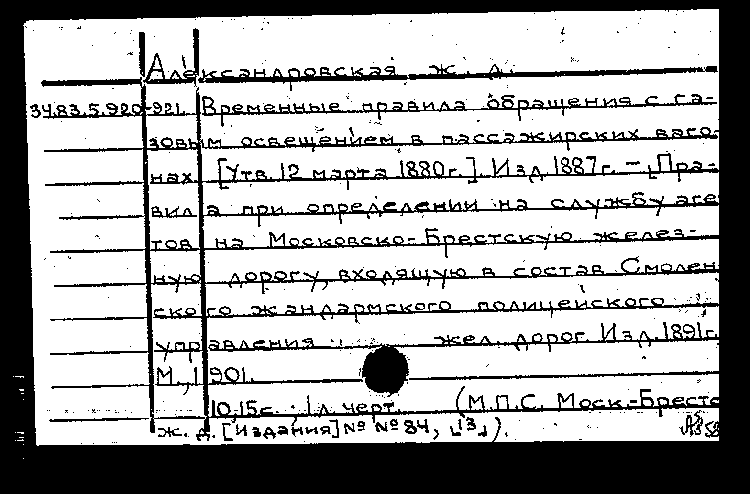 Александровская ж. д.
34.83.5.920-921. Временные правила обращения с га-
зовым освещением в пассажирских ваго-
нах. [Утв. 12 марта 1880г.]. Изд. 1887г. – [Пра-
вила при определении на службу аге
тов на Московско-Брестскую желез-
ную дорогу, входящую в состав Смолен
ского жандармского полицейского
управления жел. дорог. Изд. 1891г.
М., 1901.
10,15с. 1 л. черт. (М.П.С. Моск.-Брестс
ж. д. [Издания] №№84, [13]).